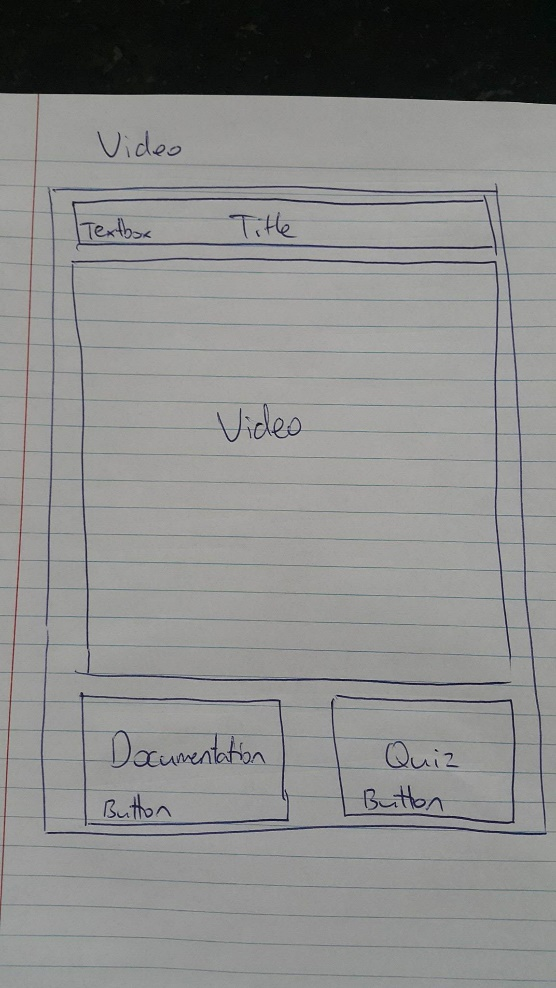 Video
Textbox Title
Video
Documentation
Button
Quiz
Button